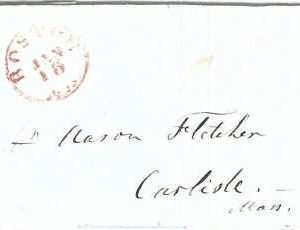 BOSTON
JAN
10
Mr Aaron Fletcher
Carlisle.
Mass.